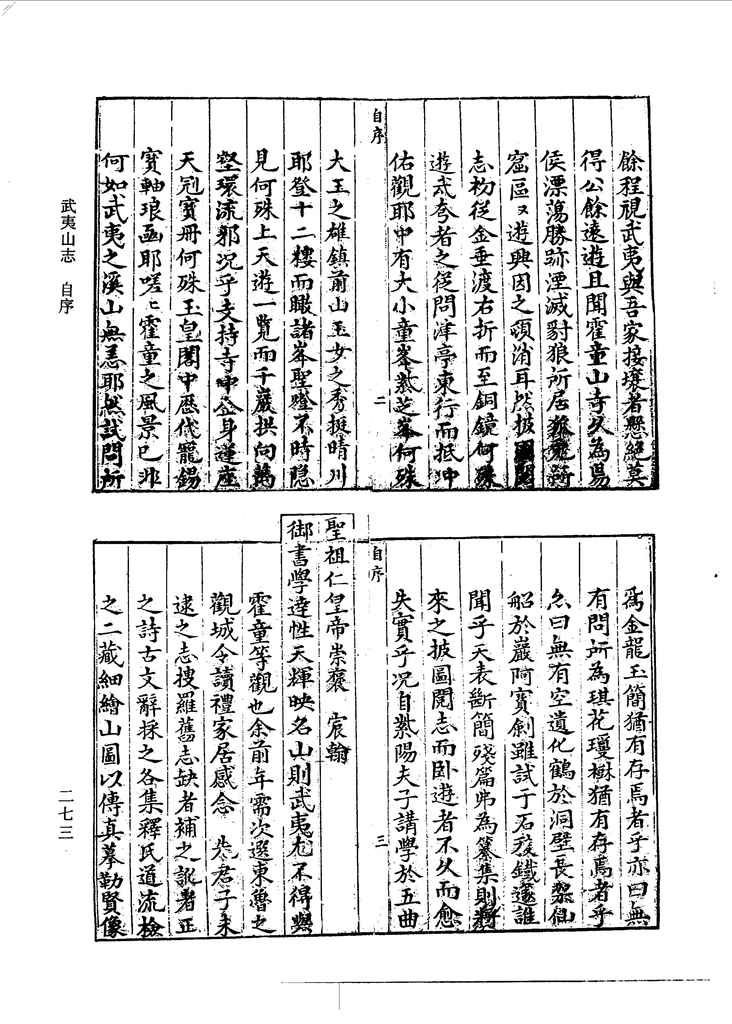 武夷山志 自序
二七三
餘程視武夷與吾家接壤者懸絕莫
得公餘遠遊且聞霍童山寺久為陽
侯漂蕩勝跡湮滅豺狼所居狐兔爲
窟區區遊興因之頓消耳然披圖閱
志枌從金垂渡右折而至銅鏡何殊
遊武夸者之從問津亭東行而抵冲
佑觀耶中有大小童峯紫芝峯何殊
自序
二
大王之雄鎮前山玉女之秀挺晴川
耶登十二樓而瞰諸峯聖燈不時隐
見何殊上天遊一覽而千巖拱向萬
壑環流邪况乎支持寺中金身蓮座
天冠寶冊何殊玉皇閣中歷代寵錫
寳軸琅函耶嗟〻霍童之風景已非
何如武夷之溪山無恙耶然試問所
為金龍玉簡猶有存焉者乎亦曰無
有問所為琪花瓊樹猶有存焉者乎
亦曰無有空遺化鶴於洞壁長架仙
船於巖阿寳劍雖試于石殘鐵邃誰
聞乎天表斷簡殘篇弗為纂集則將
來之披圖閱志而卧遊者不久而愈
失實乎况自紫陽夫子講學於五曲
自序
三
聖祖仁皇帝崇褒 宸翰
御書學達性天輝映名山則武夷尤不得與
霍童等觀也余前年需次選東魯之
觀城令讀禮家居感念 先君子未
逮之志搜羅舊志缺者補之訛者正
之詩古文辭採之各集釋氏道流檢
之二藏細繪山圖以傳真摹勒賢像